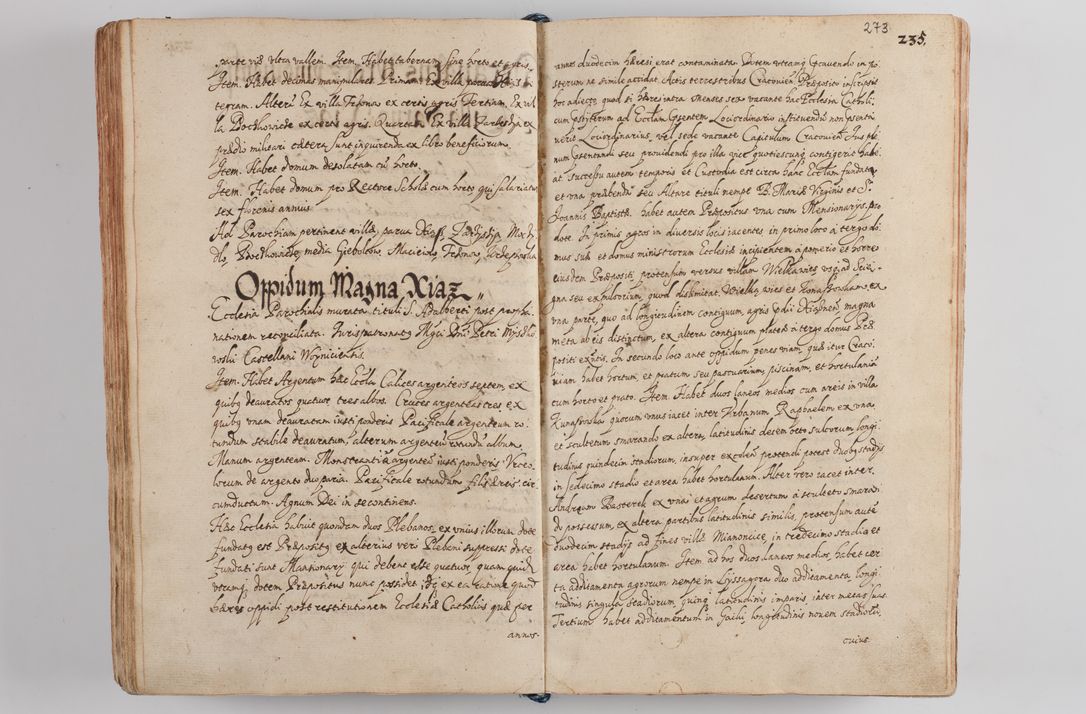 parte viæ ultra vallem. Item. Habet tabernam sine horto et agris.
Item. Habet decimas manipulares. Primam Ex villa parua Xias in
tegram. Alterā Ex villa Tesonas ex certis agris Tertiam. Ex vil
la Poczhowicze ex certis agris. Quartam Ex villa ex
prædio militari cætera sunt inquirenda ex libro beneficiorum.
Item. Habet domum desolatam cū horto.
Item. Habet domum pro Rectore Scholæ cum horto, qui salariatur
sex florenis annuis
Ad Parochiam pertinent villæ, parua Xiass,
media Giebołtow, Macieiow
Oppidum Magna Xiaz
Ecclesia Parochialis murata tituli S. Adalberti post propha
nationem reconciliata. Iurispatronatus Mgci Dni Petri Mysko
woski Castellani Woyniciensis.
Item. Habet Argentum hæc Eccła Calices argenteos septem, ex
quibus deauratos quatuor tres albos. Cruces argenteas tres, ex
quibus vnam deauratam iusti ponderis Pacificale argenteum ro
tundum stabile deauratum, alterum argenteū rotundū album.
Manum argenteam. Monstrantiā argenteā iusti ponderis. Vrceo
lorum de argento duo paria. Pacificale rotundum filis æreis cir
cumductum. Agnum Dei in se continens.
Hæc Ecclesia habuit quondam duos Plebanos, ex vnius illorum dote
fundatus est Præpositus ex alterius veri Plebani suppressi dote
fundati sunt Mansionarij qui debent esse quatuor, quamquidē
vtramque dotem Præpositus nunc possidet idque ex ea ratione quod
hæres oppidi post restitutionem Ecclesiæ Catholicis quæ per
annos
273
235.
annos duodecim hæresi erat contaminata. Dotem vtramque cauendo in po
sterum ne simile accidat. Actis terrestribus Cracouien. Præposito inscripsit
hoc adiecto quod si hæres intra menses sex vacante hac Ecclesia Catholi,
cum psbyterum ad Ecclam psentem Lociordinario instituendū non psenta
uerit Lociordinarius, vel sede vacante Capitulum Cracouien. Ius ple
num psentandi seu prouidendi pro illa vice quotiescunque contigerit habe
at successu autem temporis et Custodia est circa hanc Ecclam fundata
et vna præbenda seu Altare tituli nempe B. Mariæ Virginis et S.
Ioannis Baptistæ. habet autem Præpositus vna cum Mensionarijs pro
dote. In primis agros in diuersis locis iacentes, in primo loco à tergo do
mus suæ et domus ministrorum Ecclesiæ incipientem à pomerio et horreo
eiusdem Præpositi protensum versus villam Wielkawies vsque ad
gna seu ex pulcorium, quod dislimitat. Wielką wies et ex
vna parte, quo ad longitudinem contiguum, agris pdii Xiąznen magna
meta ab eis distinctum, ex altera contiguum plateæ à tergo domus Præ
positi existis. In secundo loco ante oppidum penes viam, qua itur Craco
uiam habet hortum, et pratum seu pascuarium, piscinam, et hortulaniā
cum horto et prato. Item. Habet duos laneos medios cum areis in villa
quorum vnus iacet inter Vrbanum Raphaelem ex vna,
et scultetum smarando ex altera latitudinis decem octo sulcorum longi
tudinis quindecim stadiorum, insuper excolen protendi potest duobus stadijs
in sedecimo stadio et area habet hortulanum. Alter vero iacet inter
Andream Pasterek ex vna et agrum desertum à sculteto smaran
do possessum, ex altera partibus latitudinis similis, protensum autē
duodecim stadijs ad fines villæ Mianonice, in tredecimo stadio et
area habet hortulanum. Item ad hos duos laneos medios, habet cer
ta additamenta agrorum nempe in Lyssagora duo additamenta, longi
tudinis singula stadiorum, quinque latitudinis imparis, inter metas suas
Tertium habet additamentum in longitudinis nouem stadiorū,
cuius